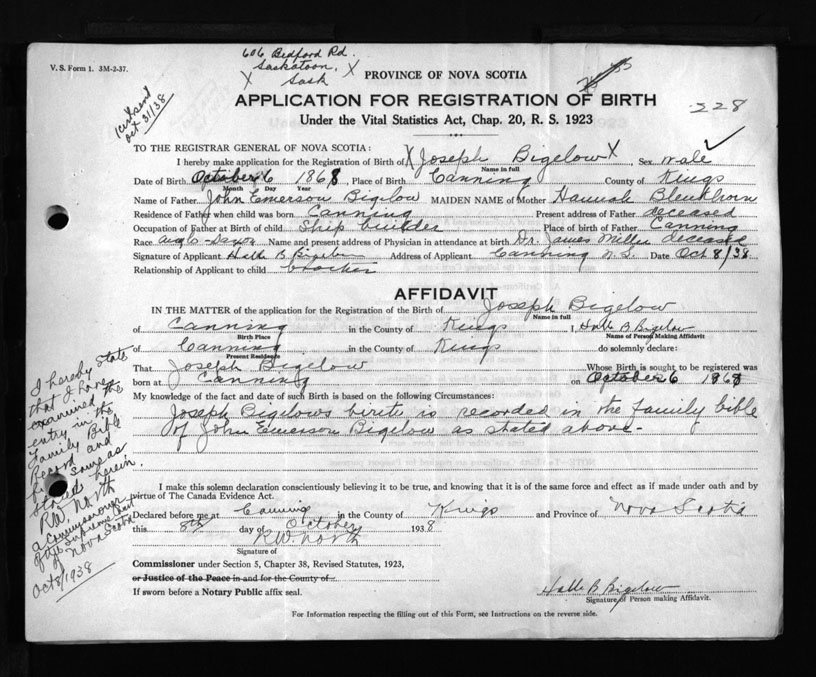 606 Bedford Rd.
V. S. Form 1. 3M-2-37.
X Saskatoon, X
Sask
PROVINCE OF NOVA SCOTIA
APPLICATION FOR REGISTRATION OF BIRTH
228
Under the Vital Statistics Act, Chap. 20, R. S. 1923
sent
Oct 31/38
TO THE REGISTRAR GENERAL OF NOVA SCOTIA:
I hereby make application for the Registration of Birth of X Joseph Bigelow X, Sex male
Name in full
Date of Birth October 6 1868, Place of Birth Canning County of Kings
Month Day Year
Name of Father John Emerson Bigelow MAIDEN NAME of Mother Hannah Blenkhorn
Residence of Father when child was born Canning Present address of Father deceased
Occupation of Father at Birth of Child Ship builder Place of birth of Father Canning
Race Anglo-Saxon Name and present address of Physician in attendance at birth Dr. James Miller deceased
Signature of Applicant Halle B Bigelow Address of Applicant Canning N.S. Date Oct 8/38
Relationship of Applicant to child brother
AFFIDAVIT
IN THE MATTER of the application for the Registration of the Birth of Joseph Bigelow
Name in full
of Canning in the County of Kings I, Halle B Bigelow
Birth Place Name of Person Making Affidavit
of Canning in the County of Kings do solemnly declare:
Present Residence
That Joseph Bigelow Whose Birth is sought to be registered was
born at Canning on October 6 1868
My knowledge of the fact and date of such Birth is based on the following Circumstances:
Joseph Bigelows birth is recorded in the family bible
of John Emerson Bigelow as stated above-
I hereby state
that I have
examined the
entry in the
Family Bible
Record and
same as
stated herein.
R.W. North
a Commissioner
of the Supreme Court
of Nova Scotia
Oct 8/1938
I make this solemn declaration conscientiously believing it to be true, and knowing that it is of the same force and effect as if made under oath and by
virtue of The Canada Evidence Act.
Declared before me at Canning in the County of Kings and Province of Nova Scotia
this 8th day of October 1938
R.W. North
Signature of
Commissioner under Section 5, Chapter 38, Revised Statutes, 1923,
or Justice of the Peace in and for the County of
If sworn before a Notary Public affix seal.
Halle B Bigelow
Signature of Person making Affidavit.
For Information respecting the filling out of this Form, see Instructions on the reverse side.